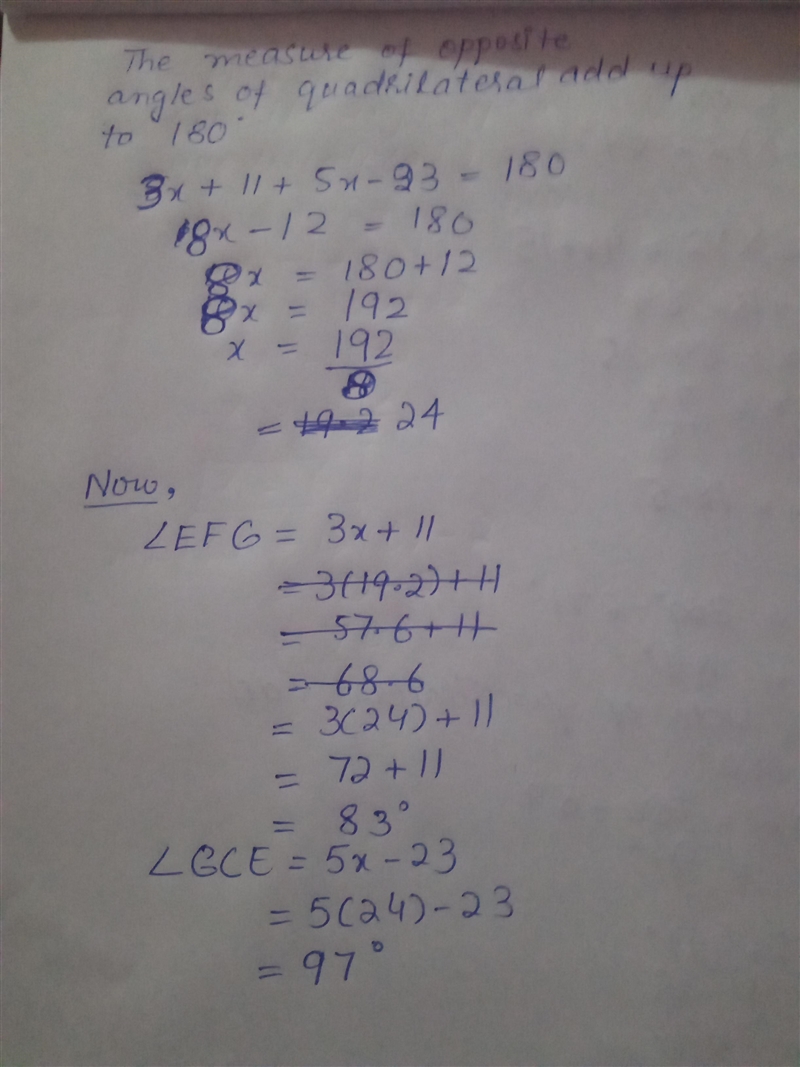 The measure of opposite
angles of quadrilateral add up
to 180°
3x + 11 + 5x - 23 = 180
8x - 12 = 180
8x = 180 + 12
8x = 192
x = 192
8
= 19.2 24
Now,
∠EFG = 3x + 11
= 3(19.2) + 11
= 57.6 + 11
= 68.6
= 3(24) + 11
= 72 + 11
= 83°
∠GCE = 5x - 23
= 5(24) - 23
= 97°